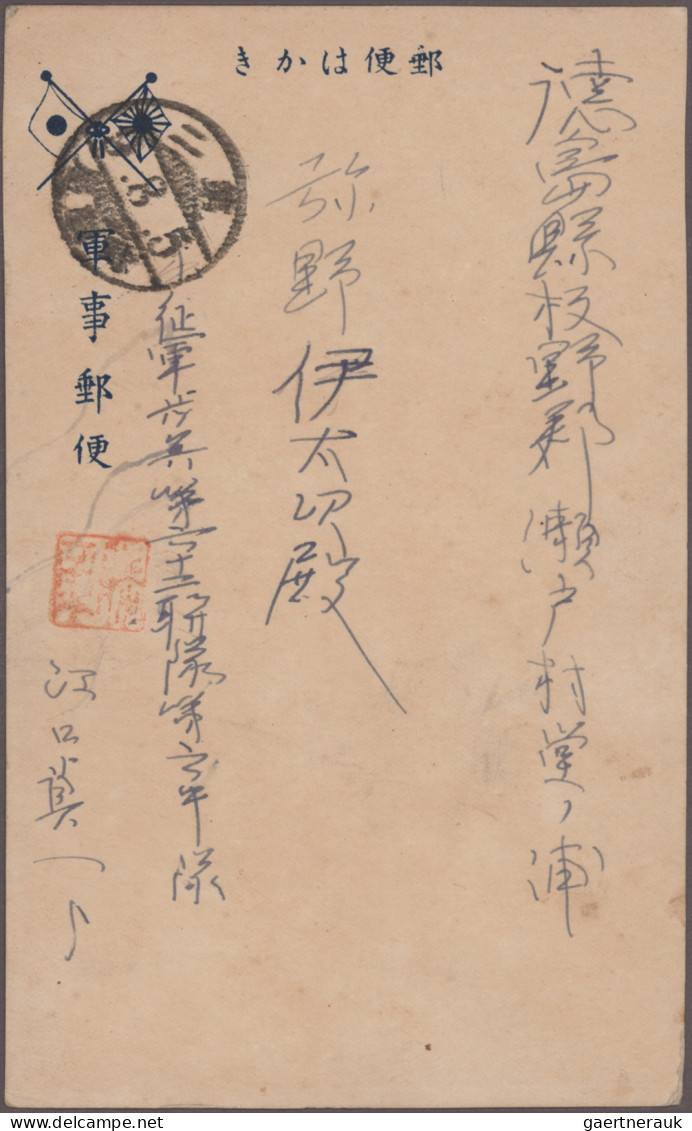 きかは便郵
徳島縣板野郡瀬戸村堂ノ浦
弥野伊太切殿
出征軍歩兵第六十二聯隊第六中隊
江口眞一
軍事郵便
8.5
gaertnerauk